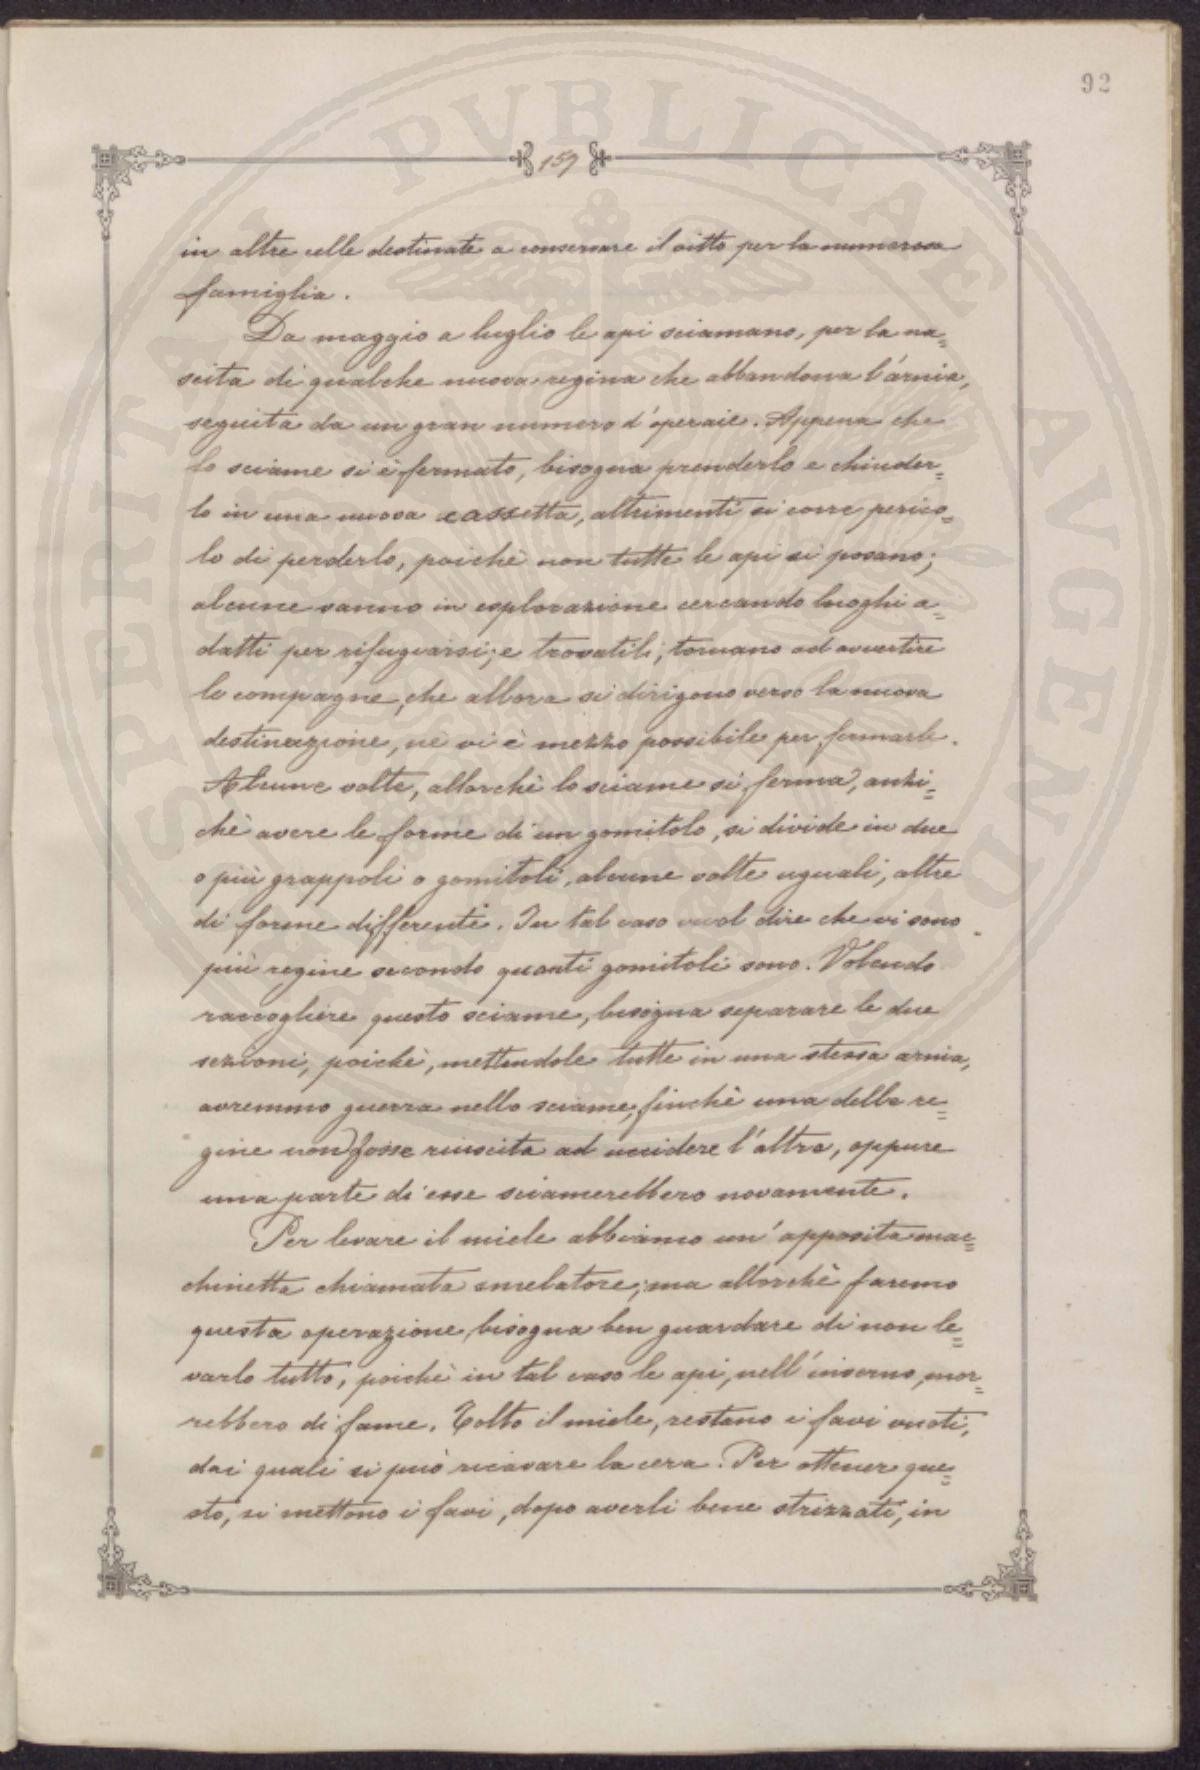 92
159
in altre celle destinate a conservare il vitto per la numerosa
famiglia.
Da maggio a luglio le api sciamano, per la na=
scita di qualche nuova regina che abbandona l'arnia,
seguita da un gran numero d'operaie. Appena che
lo sciame si è fermato, bisogna prenderlo e chiuder=
lo in una nuova cassetta, altrimenti si corre perico=
lo di perderlo, poichè non tutte le api si posano;
alcune vanno in esplorazione cercando luoghi a=
datti per rifugiarsi; e trovatili, tornano ad avvertire
le compagne, che allora si dirigono verso la nuova
destinazione, nè vi è mezzo possibile per fermarle.
Alcune volte, allorchè lo sciame si ferma, anzi=
chè avere le forme di un gomitolo, si divide in due
o più grappoli o gomitoli, alcune volte uguali, altre
di forme differenti. In tal caso vuol dire che vi sono
più regine secondo quanti gomitoli sono. Volendo
raccogliere questo sciame, bisogna separare le due
sezioni, poichè, mettendole tutte in una stessa arnia,
avremmo guerra nello sciame, finchè una delle re=
gine non fosse riuscita ad uccidere l'altra, oppure
una parte di esse sciamerebbero novamente.
Per levare il miele abbiamo un' apposita mac=
chinetta chiamata smelatore; ma allorchè faremo
questa operazione, bisogna ben guardare di non le=
varlo tutto, poichè in tal caso le api, nell' inverno, mor=
rebbero di fame. Tolto il miele, restano i favi vuoti,
dai quali si può ricavare la cera. Per ottener que=
sto, si mettono i favi, dopo averli bene strizzati, in
PVBLICAE AVGENDAE